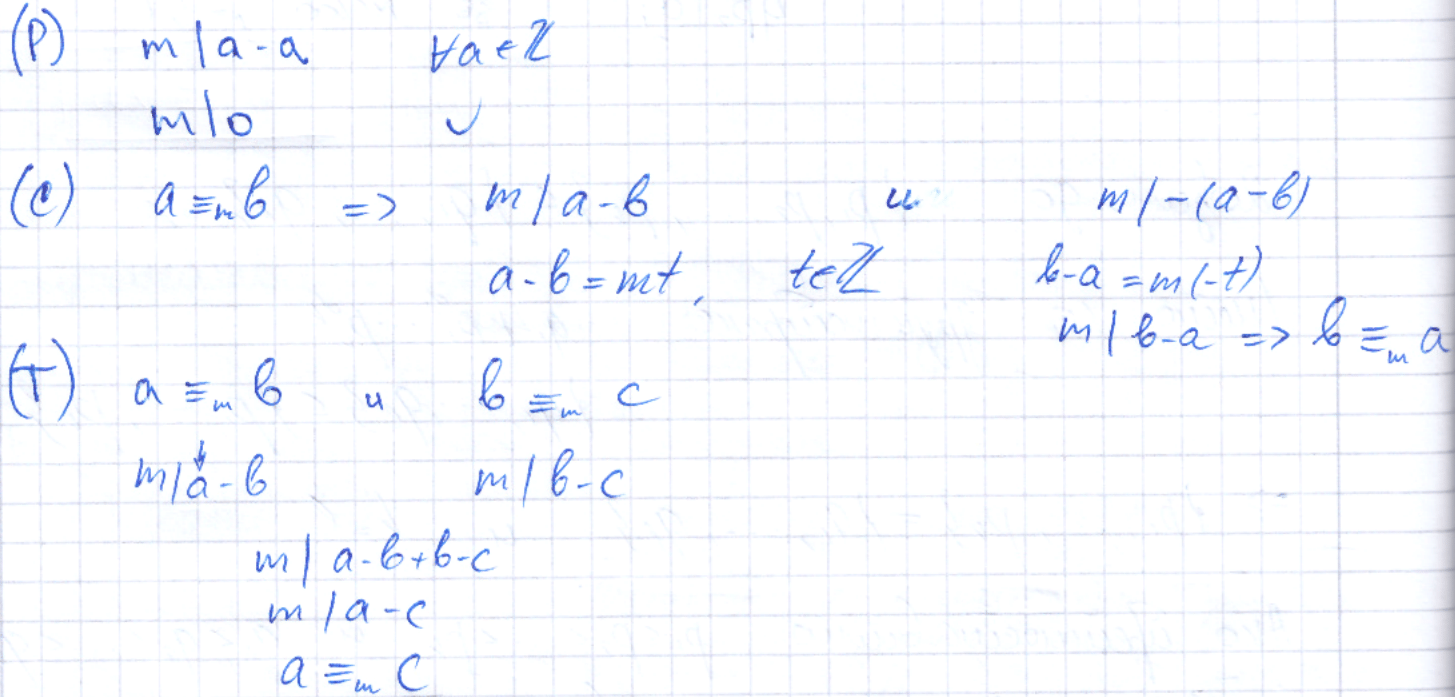 (Р) m | a - a ∀a ∈ ℤ
m | 0 ✓
(С) a ≡ₘ b => m / a - b и m / -(a - b)
a - b = mt, t ∈ ℤ b - a = m(-t)
m | b - a => b ≡ₘ a
(Т) a ≡ₘ b и b ≡ₘ c
m / a - b m / b - c
m | a - b + b - c
m / a - c
a ≡ₘ c